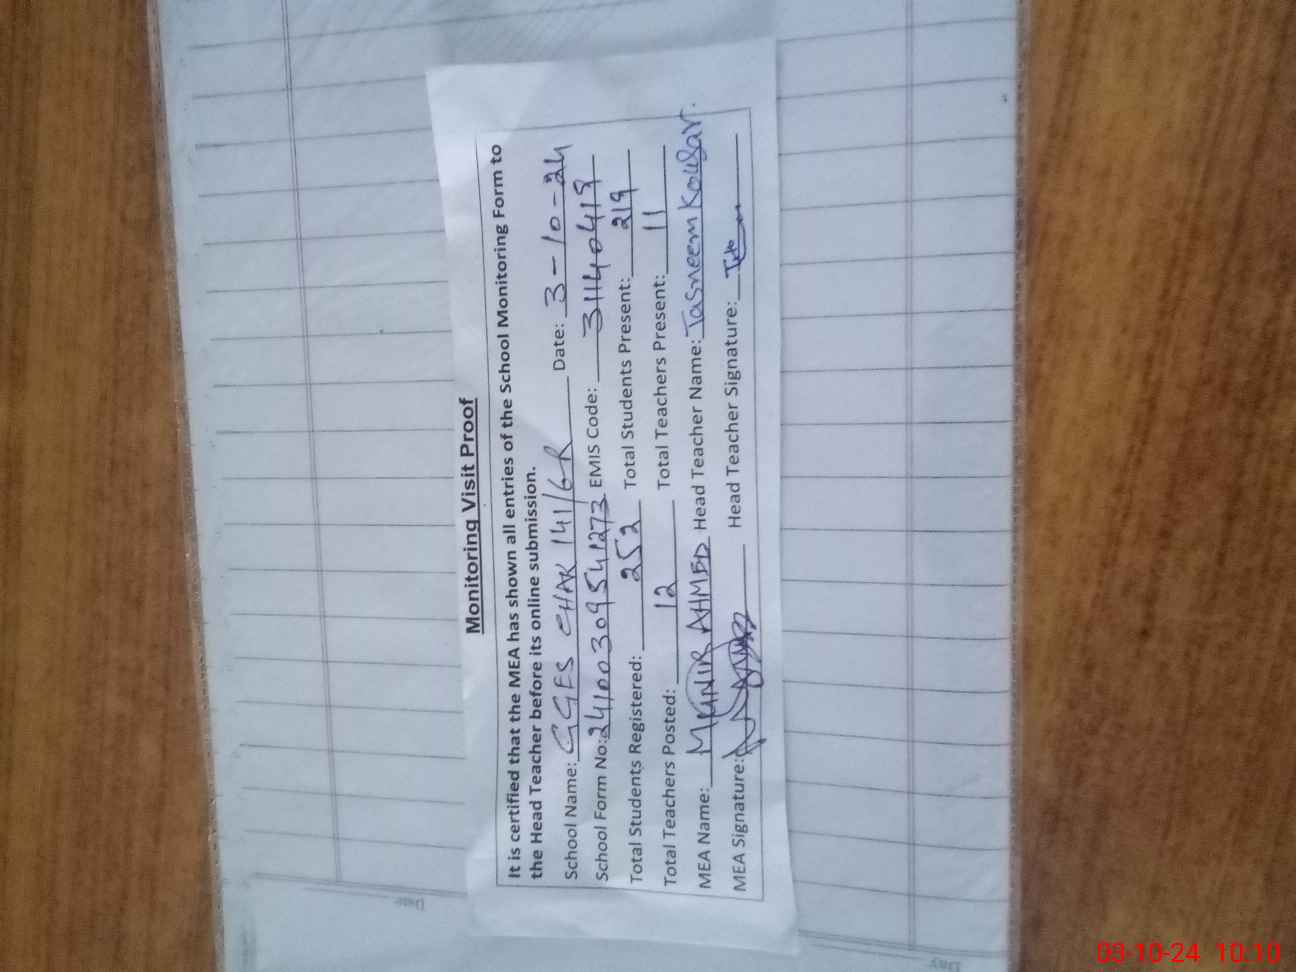 Monitoring Visit Proof
It is certified that the MEA has shown all entries of the School Monitoring Form to
the Head Teacher before its online submission.
School Name: GGES CHAK 141/6R Date: 3-10-24
School Form No: 2410030954 1273 EMIS Code: 31140418
Total Students Registered: 252 Total Students Present: 219
Total Teachers Posted: 12 Total Teachers Present: 11
MEA Name: MUNIR AHMED Head Teacher Name: Tasneem Kousar.
MEA Signature: Head Teacher Signature:
Date
Day
03-10-24 10:10